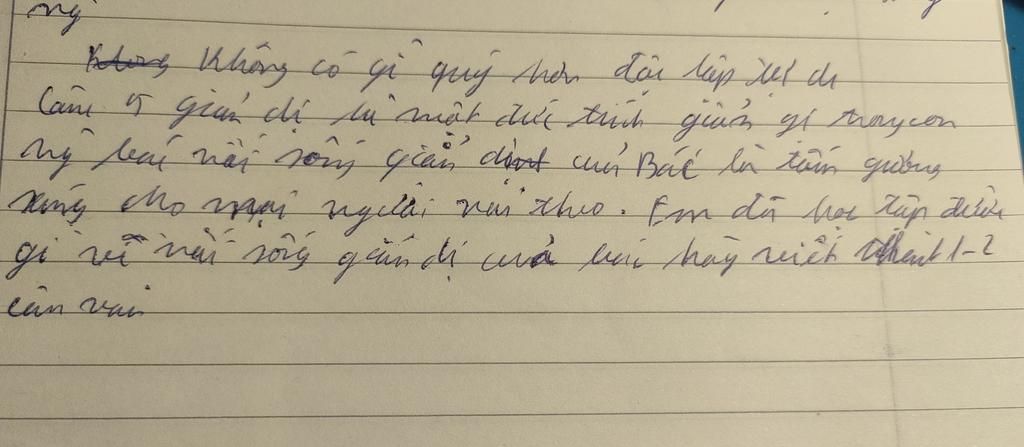 ng
Không Không có gì quý hơn độc lập tự do
Câu 5 giản dị là một đức tính giản gị trong con
ng bác nối sống giản dị của Bác là tấm gương
sáng cho mọi người noi theo. Em đã học tập được
gì về nối sống giản dị của bác hãy viết 1-2
câu văn